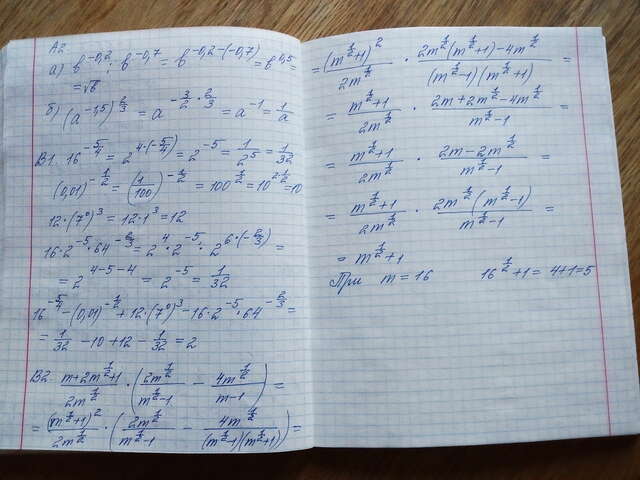 А2
а) b^{-0,2} : b^{-0,7} = b^{-0,2-(-0,7)} = b^{0,5} =
= √b
б) (a^{-1,5})^{2/3} = a^{-3/2 · 2/3} = a^{-1} = 1/a
В1. 16^{-5/4} = 2^{4·(-5/4)} = 2^{-5} = 1/2^5 = 1/32
(0,01)^{-1/2} = (1/100)^{-1/2} = 100^{1/2} = 10^{2·1/2} = 10
12·(7^0)^3 = 12·1^3 = 12
16·2^{-5}·64^{-2/3} = 2^4·2^{-5}·2^{6·(-2/3)} =
= 2^{4-5-4} = 2^{-5} = 1/32
16^{-5/4} - (0,01)^{-1/2} + 12·(7^0)^3 - 16·2^{-5}·64^{-2/3} =
= 1/32 - 10 + 12 - 1/32 = 2
В2. (m+2m^{1/2}+1)/(2m^{1/2}) · (2m^{1/2}/(m^{1/2}-1) - 4m^{1/2}/(m-1)) =
= (m^{1/2}+1)^2/(2m^{1/2}) · (2m^{1/2}/(m^{1/2}-1) - 4m^{1/2}/((m^{1/2}-1)(m^{1/2}+1))) =
= (m^{1/2}+1)^2/(2m^{1/2}) · (2m^{1/2}(m^{1/2}+1)-4m^{1/2})/((m^{1/2}-1)(m^{1/2}+1)) =
= (m^{1/2}+1)/(2m^{1/2}) · (2m+2m^{1/2}-4m^{1/2})/(m^{1/2}-1) =
= (m^{1/2}+1)/(2m^{1/2}) · (2m-2m^{1/2})/(m^{1/2}-1) =
= (m^{1/2}+1)/(2m^{1/2}) · (2m^{1/2}(m^{1/2}-1))/(m^{1/2}-1) =
= m^{1/2}+1
При m = 16 16^{1/2}+1 = 4+1=5